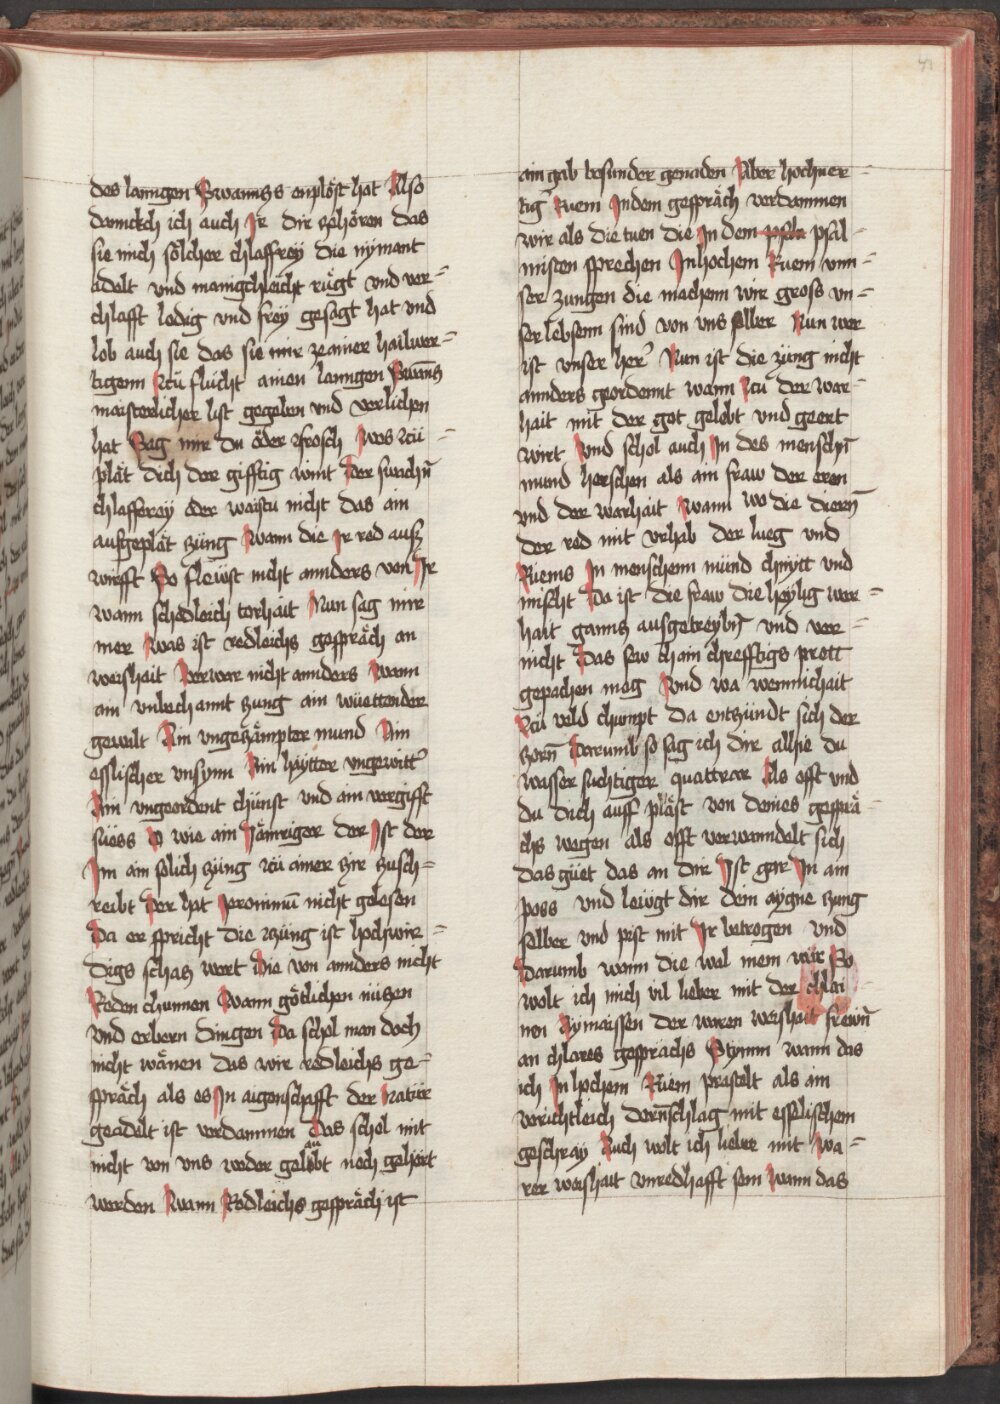 41
des lanngen Swannss enplöst hat Also
dannckch ich auch Ir dir zehören das
sie mich sölcher chlaffrey die nymant
adelt vnd manigchleicht rügt vnd ver=
chlafft ledig vnd frey gesagt hat vnd
lob auch sie das sie mir ze ainer hailwer=
tigenn Zcu flucht ainen lanngen Swanns
maisterlicher list gegeben vnd verlichen
hat Sag mir du öder zfrosch Was zcü=
plät dich der gifftig wint der
chlafferey oder waistu nicht das ain
aufgeplät züng Wann die Ir red ausz
wirfft So flewst nicht annders von Ir
wann schedleich torhait Nun sag mir
mer Was ist redleichs gespräch an
weishait Verwar nicht annders Wann
ain vnbechannt zung ain wüettender
gewalt Ain vngezämpter mund Ain
esslischer vnsynn Ain haytter vngewitter
Ain vngeordent chünst vnd ain vergifft
süess O wie ain Jämriger der Ist der
Im ain solich züng zcü ainer zir zusch=
reibt Der hat Jeronimum nicht gelesen
Da er spricht die zung ist hochwir=
digs schatz wert Die von annders nicht
Reden chunnen Wann götlichen nüczen
vnd erbern dingen Da schol man doch
nicht wänen das wir redleichs ge=
spräch als es In aigenschafft der Natür
geadelt ist verdammen Das schol mit
nicht von vns weder gelaubt noch gehört
werden Wann Redleichs gespräch ist
ain gab besunder genaden Aber hochuer=
tig Ruem Indem gespräch verdammen
wir als die tuen die In dem psal=
misten sprechen In hochem Ruem vnn=
ser zungen die machenn wir gross vn=
ser lebsenn sind von vns selber Nun wer
ist vnser her Nun ist die züng nicht
annders geordennt wann Zcü der war=
hait mit der got gelobt vnd geert
wirt Vnd schol auch In des menschn
mund herschen als ain fraw der eren
vnd der warhait Wann wo die diern
der red mit vrhab der lueg vnd
Riems In menschenn münd chnytt vnd
mischt Da ist die fraw die heylig wer=
hait gannts ausgetreybn vnd ver=
nicht Das sew chain chrefftigs prott
gepachen mag Vnd wa wennichait
Zcü veld chumpt da entzündt sich der
zorn Darumb so sag ich dir alhie du
wasser suchtiger quattrar Als offt vnd
du dich auff pläst von deines gesprä=
chs wegen als offt verwanndelt sich
das güet das an dir Ist gar In ain
poss vnd lewgt dir dein aygne zung
selber vnd pist mit Ir betrogen vnd
Darumb wann die wal mein wär So
wolt ich mich vil lieber mit der chlai=
nen Aymaissen der waren weishait frewn
an chlares gesprächs Stymm wann das
ich In hochem Ruem prastelt als ain
verichtleich dornschlag mit esselischem
geschray Auch wolt ich lieber mit Wa=
rer weishait vnredhafft sein Wann das